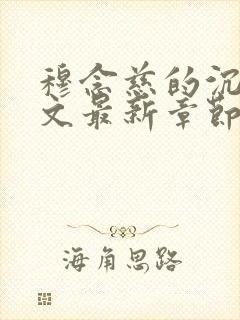 穆念慈的沉
文最新章节
海角思路